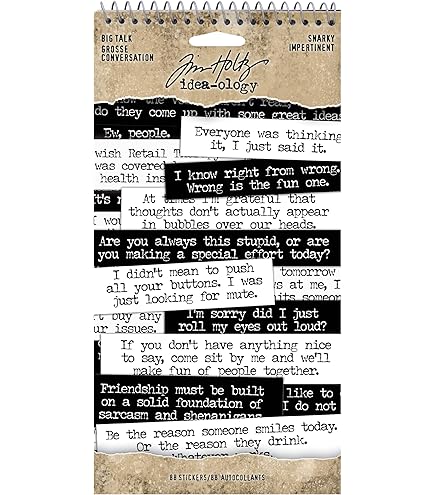 BIG TALK
GROSSE
CONVERSATION
SNARKY
IMPERTINENT
Tim Holtz
idea-ology
do they come up with some great ideas
Ew, people.
Everyone was thinking
it, I just said it.
wish Retail
was covered
health ins
I know right from wrong.
Wrong is the fun one.
It's
At times I'm grateful that
thoughts don't actually appear
in bubbles over our heads.
I wou
Are you always this stupid, or are
you making a special effort today?
I didn't mean to push
all your buttons. I was
just looking for mute.
tomorrow
at me, I
its someone
t buy any
ur issues.
I'm sorry did I just
roll my eyes out loud?
If you don't have anything nice
to say, come sit by me and we'll
make fun of people together.
Friendship must be built
on a solid foundation of
sarcasm and shenanigans.
like to
I do not
Be the reason someone smiles today.
Or the reason they drink.
Whatever works.
88 STICKERS/88 AUTOCOLLANTS